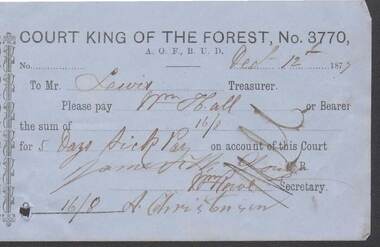 COURT KING OF THE FOREST, No. 3770,
A. O. F., B. U. D.
No. Dec 12th 1877
To Mr. Lewis Treasurer.
Please pay Wm Hall or Bearer
the sum of 16/0
for 5 Days Sick Pay on account of this Court
James C. R.
Wm Secretary.
16/0 A. Christensen